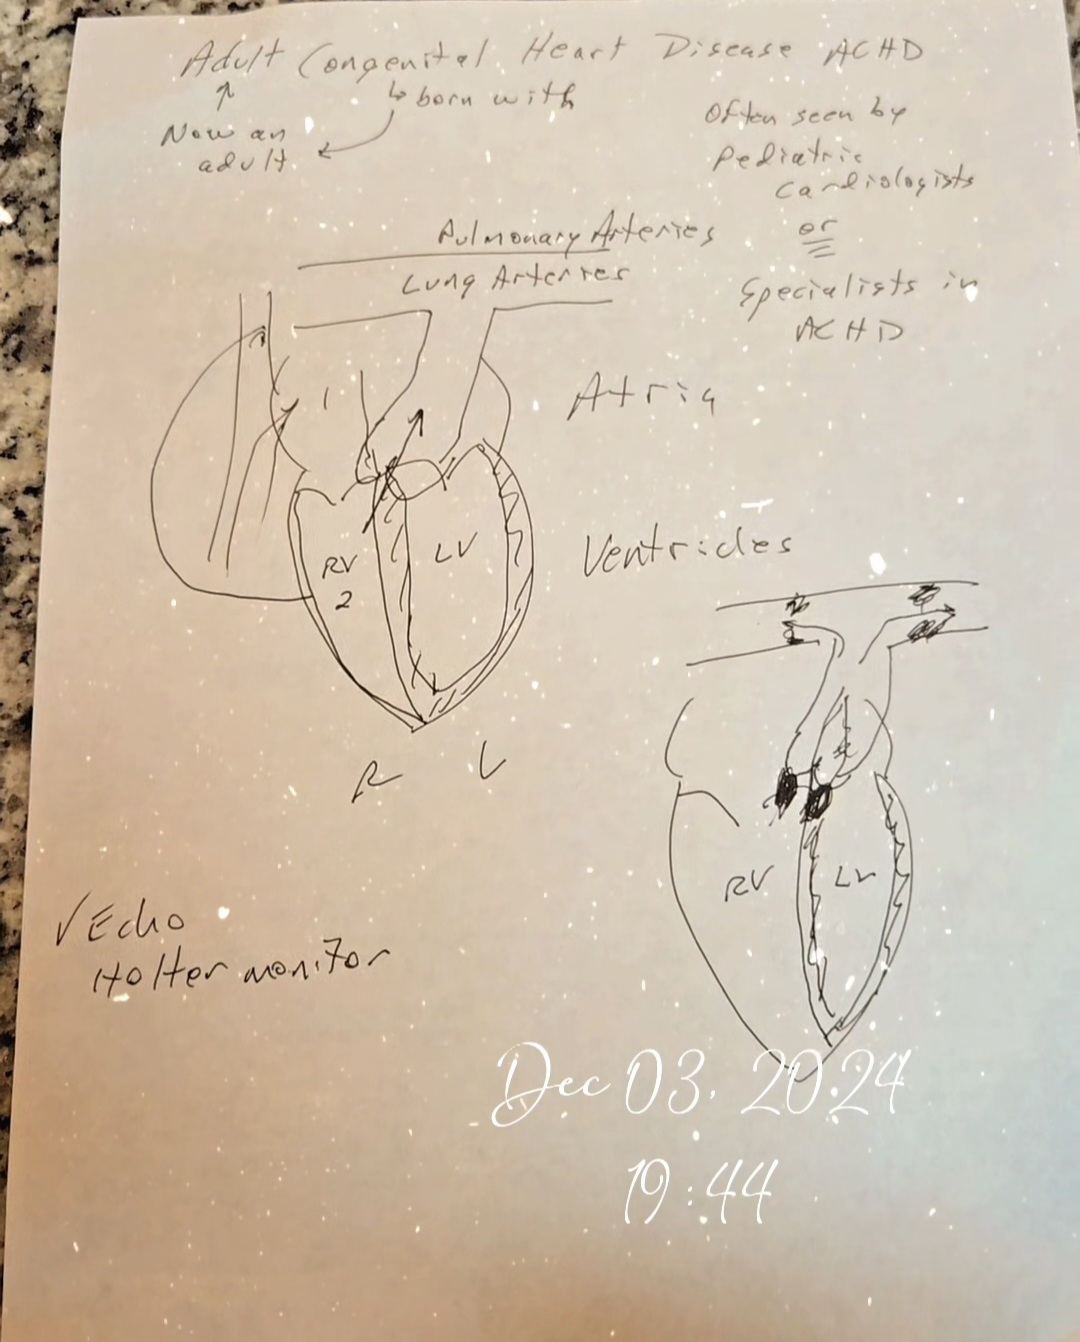 Adult Congenital Heart Disease ACHD
born with
Now an
adult
Often seen by
Pediatric
cardiologists
or
Specialists in
ACHD
Pulmonary Arteries
Lung Arteries
Atria
1
RV
2
LV
Ventricles
R L
RV LV
√ Echo
Holter monitor
Dec 03, 2024
19:44